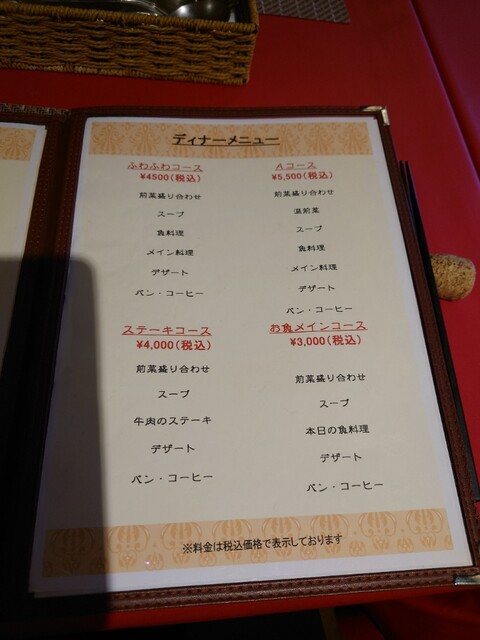 ディナーメニュー
ふわふわコース
¥4500(税込)
前菜盛り合わせ
スープ
魚料理
メイン料理
デザート
パン・コーヒー
Aコース
¥5,500(税込)
前菜盛り合わせ
温前菜
スープ
魚料理
メイン料理
デザート
パン・コーヒー
ステーキコース
¥4,000(税込)
前菜盛り合わせ
スープ
牛肉のステーキ
デザート
パン・コーヒー
お魚メインコース
¥3,000(税込)
前菜盛り合わせ
スープ
本日の魚料理
デザート
パン・コーヒー
※料金は税込価格で表示しております